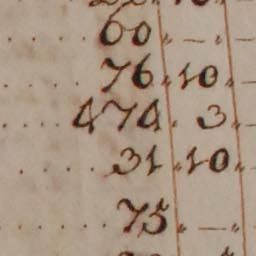 60 . — .
76 . 10 .
474 . 3 .
31 . 10 .
75 . — .